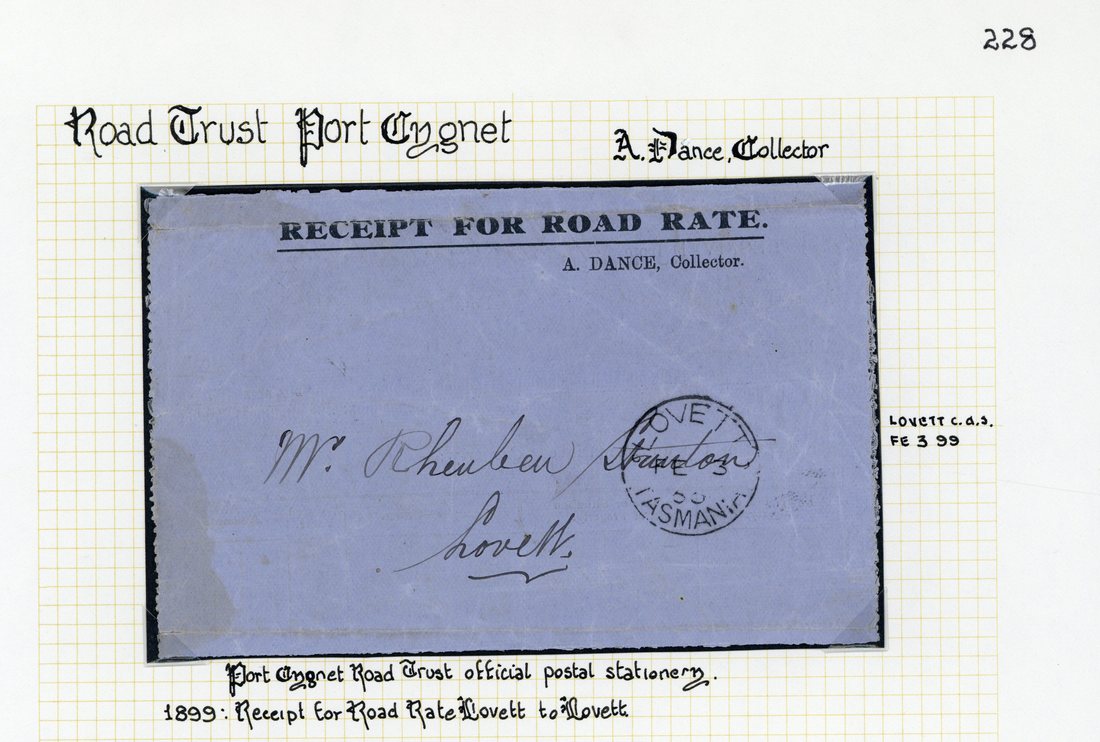 228
Road Trust Port Cygnet
A. Dance, Collector
RECEIPT FOR ROAD RATE.
A. DANCE, Collector.
LOVETT
FE 3
TASMANIA
Mr. Rheuben
Lovett.
LOVETT c.d.s.
FE 3 99
Port Cygnet Road Trust official postal stationery.
1899: Receipt for Road Rate Lovett to Lovett